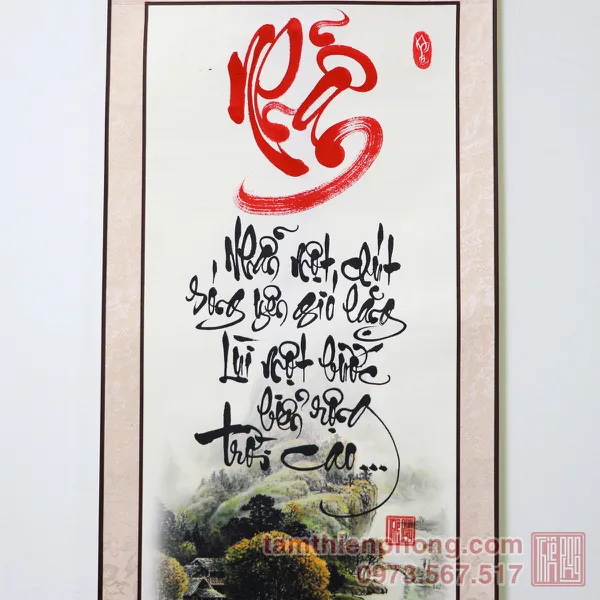 Nhẫn
Nhẫn một chút
sóng yên gió lặng
Lùi một bước
biển rộng
trời cao...
tamthienphong.com
0973.567.517